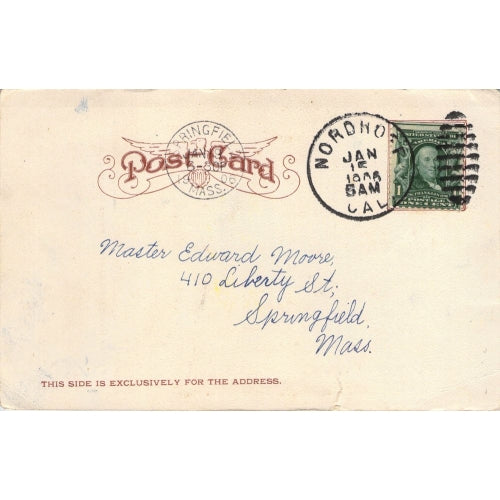 Post Card
NORDHOFF
JAN
15
1906
6AM
CAL
1
Master Edward Moore,
410 Liberty St,
Springfield,
Mass.
THIS SIDE IS EXCLUSIVELY FOR THE ADDRESS.